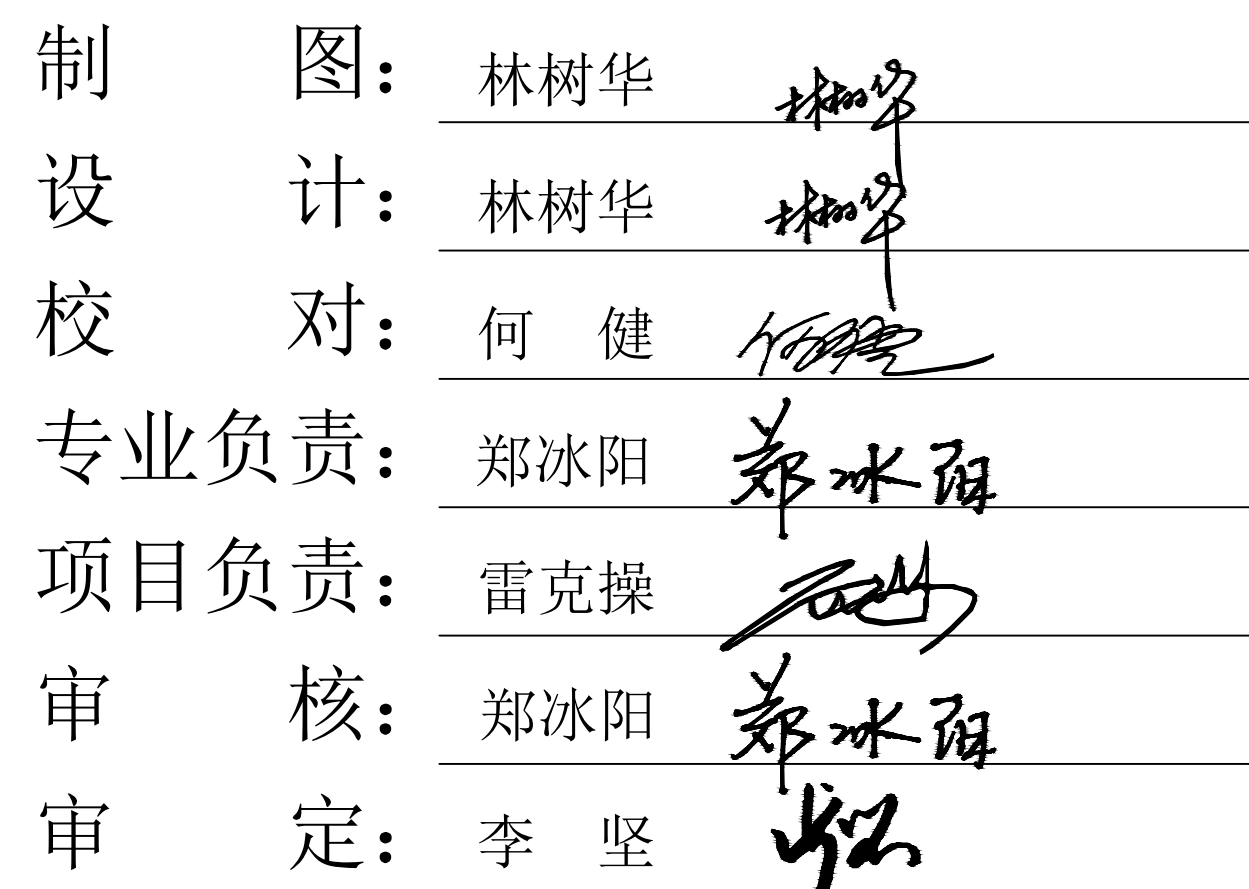 制 图：林树华 林树华
设 计：林树华 林树华
校 对：何 健 何健
专业负责：郑冰阳 郑冰阳
项目负责：雷克操
审 核：郑冰阳 郑冰阳
审 定：李 坚